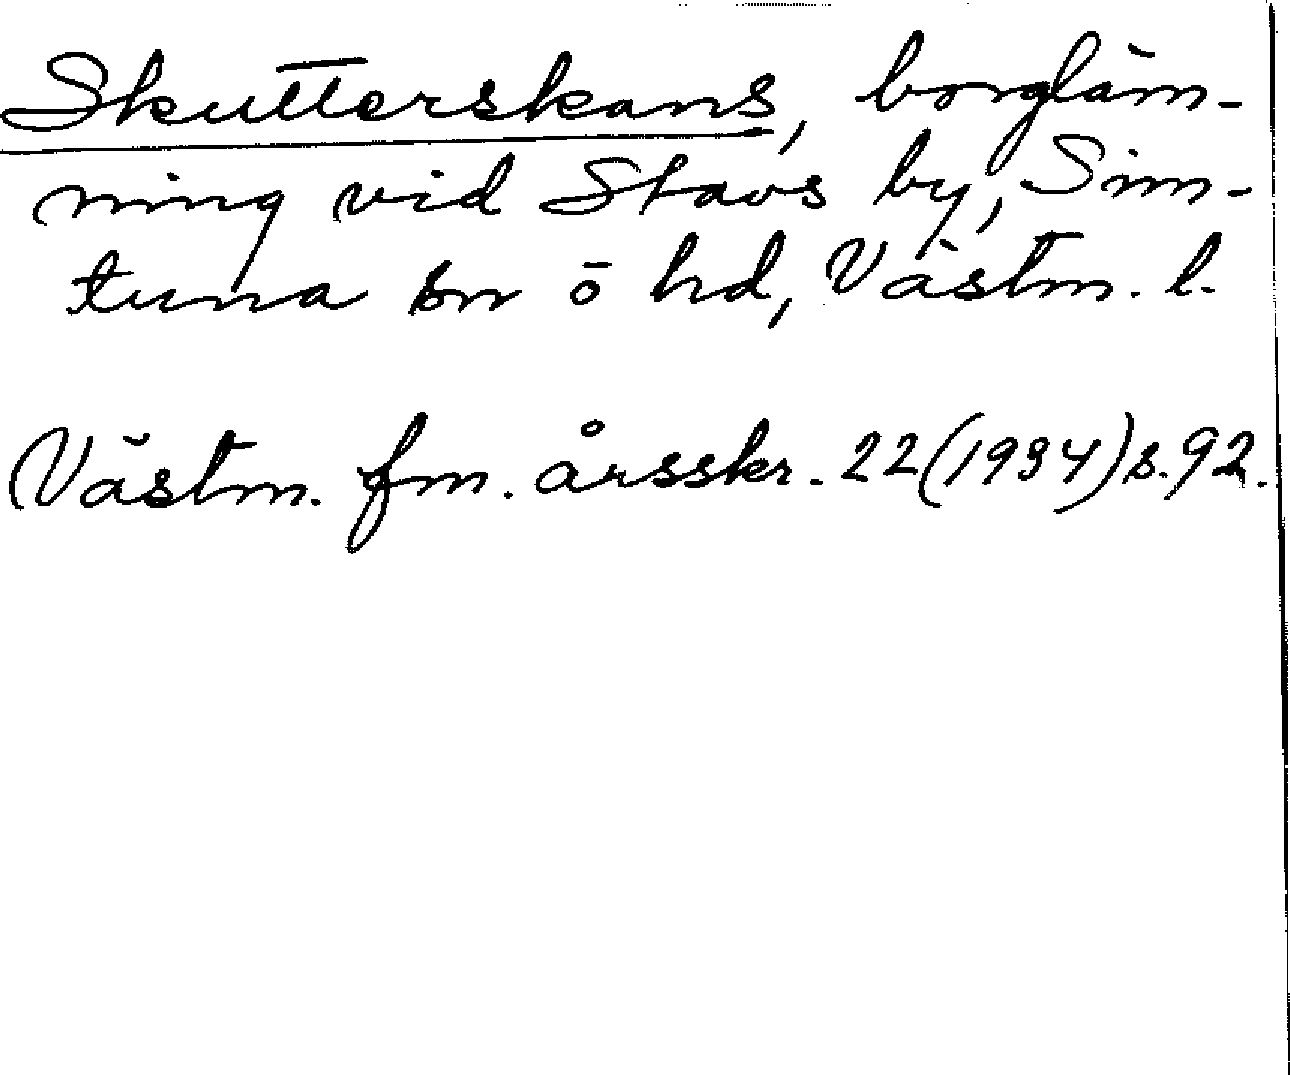 Skutterskans, borgläm-
ning vid Stavs by, Sim-
tuna sn ö hd, Västm. l.
Västm. fm. årsskr. 22 (1934) s. 92.